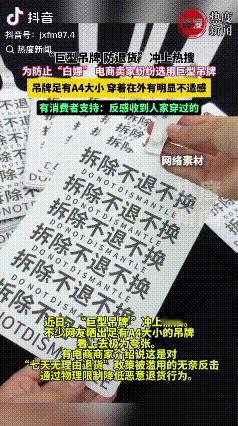 抖音
抖音号：jxfm97.4
热度新闻
热度
新闻
“巨型吊牌 防退货”冲上热搜
为防止“白嫖” 电商卖家纷纷选用巨型吊牌
吊牌足有A4大小 穿着在外有明显不适感
有消费者支持：反感收到人家穿过的
网络素材
拆除不退不换
DONOTDISMANTLE
拆除不退不换
DONOTDISMANTLE
拆除不退不换
DONOTDISMANTLE
拆除不退不换
DONOTDISMANTLE
拆除不退不换
近日，“巨型吊牌”冲上热搜。
不少网友晒出足有A4大小的吊牌
看上去极为夸张。
有电商商家介绍说这是对
“七天无理由退货”政策被滥用的无奈反击
通过物理限制降低恶意退货行为。